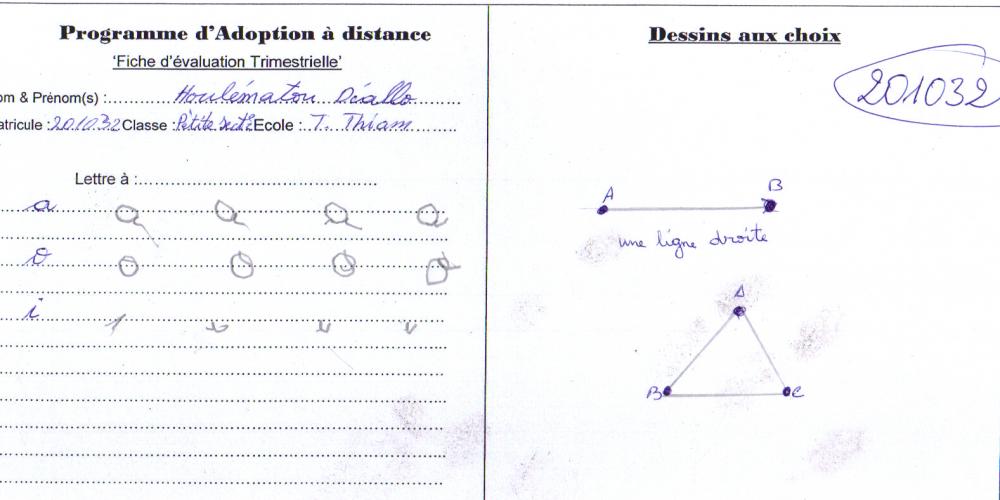 Programme d'Adoption à distance
'Fiche d'évaluation Trimestrielle'
om & Prénom(s) :............Houlématou Diallo............
atricule :201032 Classe :Petite sect° Ecole :..T. Thiam............
Lettre à :............................................
a a a a a
o o o o o
i
Dessins aux choix
201032
A B
une ligne droite
A
B C